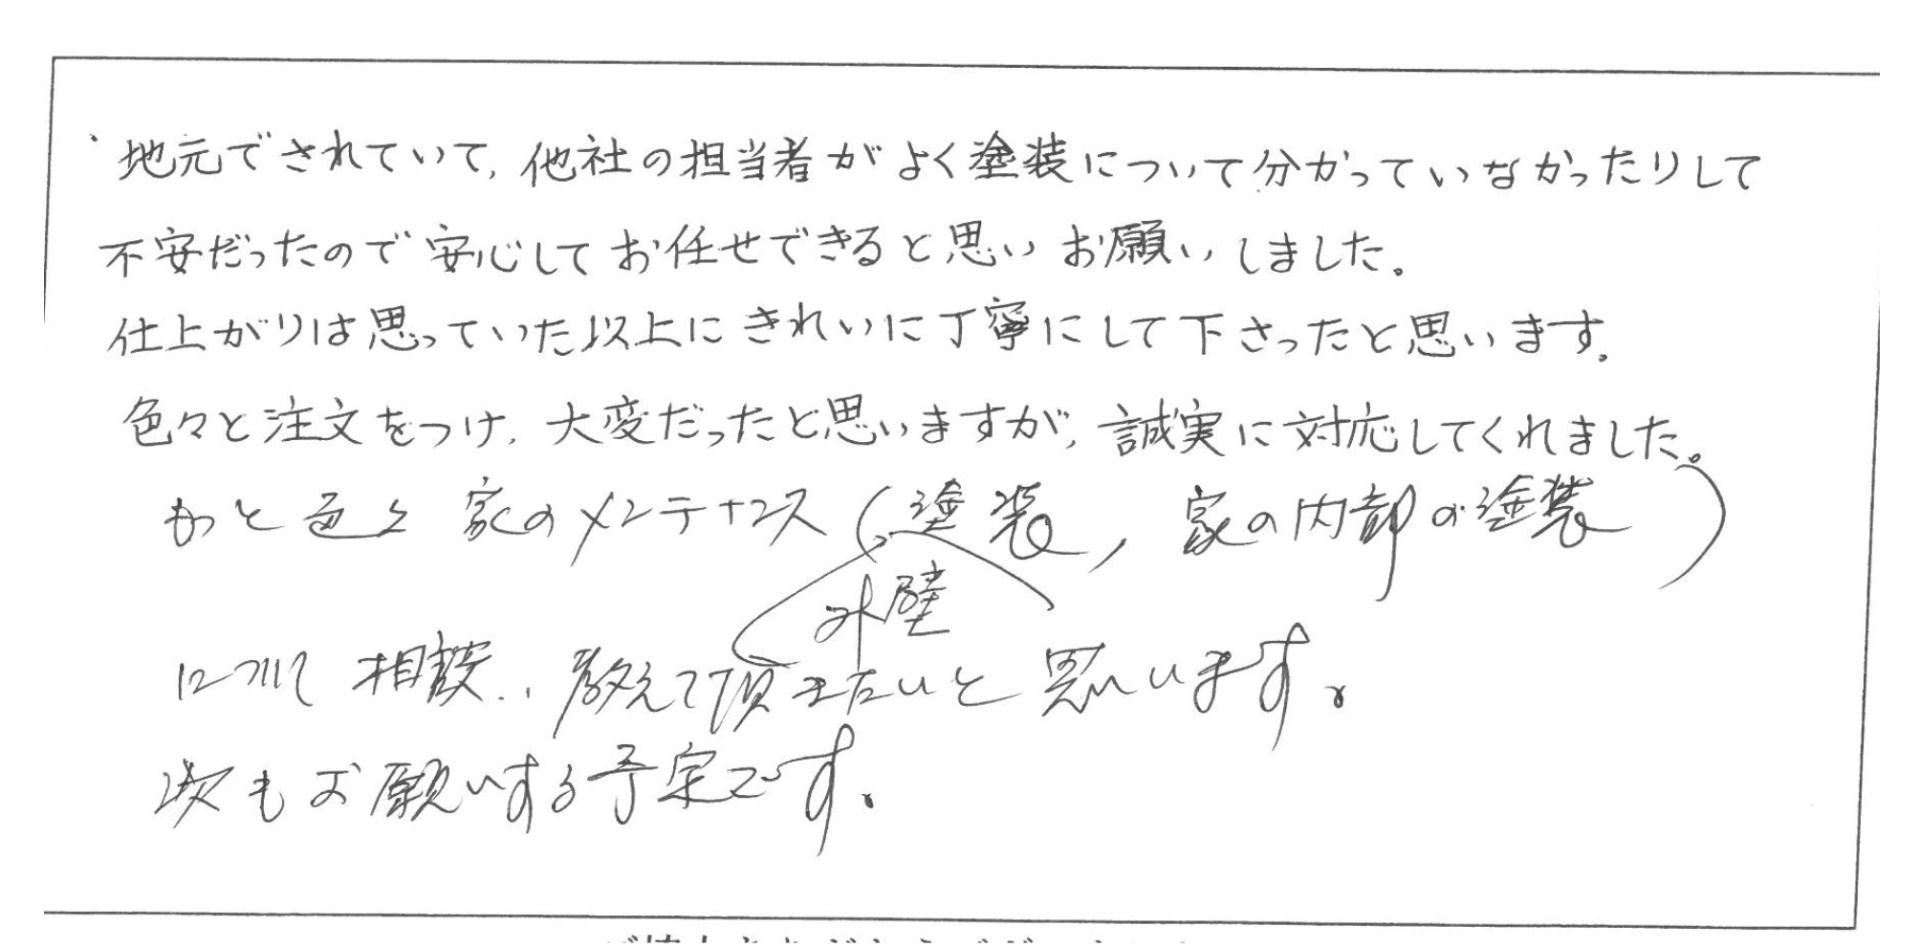 ・地元でされていて、他社の担当者がよく塗装について分かっていなかったりして
不安だったので安心してお任せできると思いお願いしました。
仕上がりは思っていた以上にきれいに丁寧にして下さったと思います。
色々と注文をつけ、大変だったと思いますが、誠実に対応してくれました。
もっと色々家のメンテナンス(塗装,家の内部の塗装)
外壁
について相談、教えて頂きたいと思います。
次もお願いする予定です。